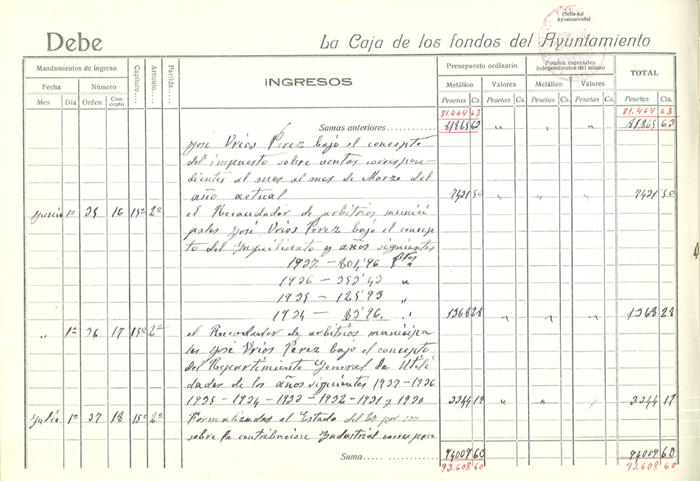 (Sello del Ayuntamiento)
Debe La Caja de los fondos del Ayuntamiento
Mandamientos de ingreso Capítulo Artículo Partida INGRESOS Presupuesto ordinario Fondos especiales independientes del mismo TOTAL
Fecha Número Metálico Valores Metálico Valores
Mes Día Orden Concepto Pesetas Cs. Pesetas Cs. Pesetas Cs. Pesetas Cs. Pesetas Cs.
81.464 63 81.464 63
Sumas anteriores 81865 63 " " " " 81865 63
José Vrios Pérez bajo el concepto
del impuesto sobre ventas correspon-
dientes al mes al mes de Marzo del
año actual 7431 50 " " " 7431 50
Junio 1º 35 16 15º 2º el Recaudador de arbitrios munici
pales José Vrios Pérez bajo el concep
to del Inquilinato y años siguientes
1937 — 804'96 Ptas
1936 — 353'43 "
1935 — 125'93 "
1934 — 83'96. " 1368 28 " " " 1368 28
" 1º 36 17 15º 2º el Recaudador de arbitrios municipa
les José Vrios Pérez bajo el concepto
del Repartimiento General de Utili
dades de los años siguientes 1937-1936
1935 - 1934 - 1933 - 1932 - 1931 y 1930 3344 19 " " " 3344 19
Julio 1º 37 18 15º 2º Formalizadas el Estado del 60 por
sobre la contribución Industrial corres
Suma 94009 60 94009 60
93.608 60 93.608 60